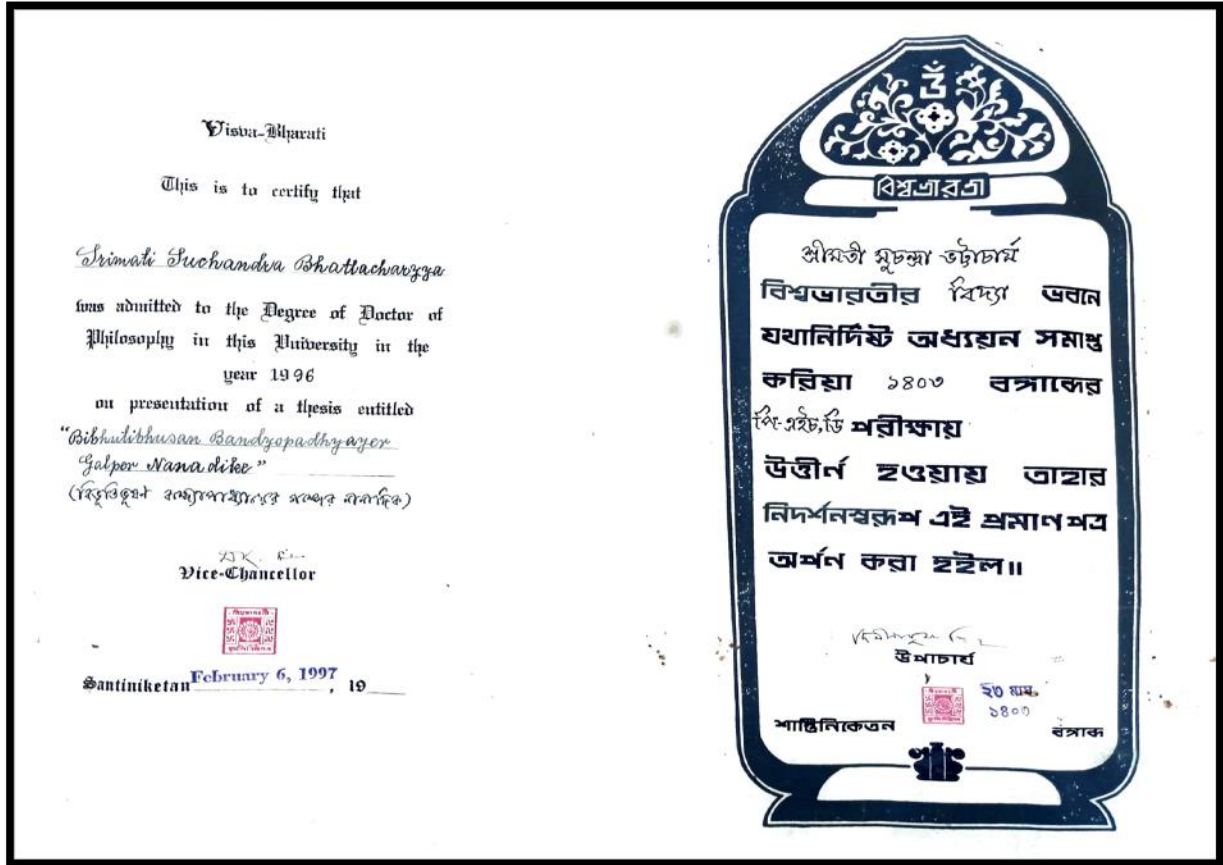 Visva-Bharati
This is to certify that
Srimati Suchandra Bhattacharyya
was admitted to the Degree of Doctor of
Philosophy in this University in the
year 1996
on presentation of a thesis entitled
"Bibhutibhusan Bandyopadhyayer
Galper Nana dike"
(বিভূতিভূষণ বন্দ্যোপাধ্যায়ের গল্পের নানাদিক)
Vice-Chancellor
Santiniketan February 6, 1997, 19
ওঁ
বিশ্বভারতী
শ্রীমতী সুচন্দ্রা ভট্টাচার্য
বিশ্বভারতীর বিদ্যা ভবনে
যথানির্দিষ্ট অধ্যয়ন সমাপ্ত
করিয়া ১৪০৩ বঙ্গাব্দের
পি-এইচ,ডি পরীক্ষায়
উত্তীর্ন হওয়ায় তাহার
নিদর্শনস্বরূপ এই প্রমাণপত্র
অর্পন করা হইল॥
উপাচার্য
২৩ মাঘ
১৪০৩
শান্তিনিকেতন বঙ্গাব্দ